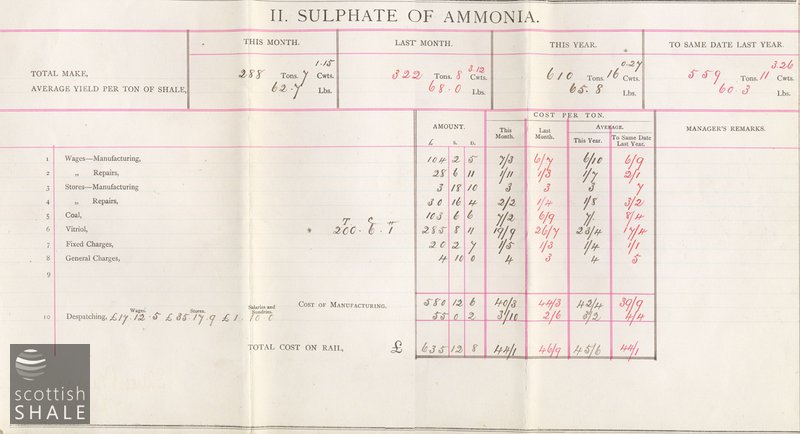 II. SULPHATE OF AMMONIA.
THIS MONTH. LAST MONTH. THIS YEAR. TO SAME DATE LAST YEAR.
1.15 3.12 0.27 3.26
TOTAL MAKE, 288 Tons. 7 Cwts. 322 Tons. 8 Cwts. 610 Tons. 16 Cwts. 559 Tons. 11 Cwts.
AVERAGE YIELD PER TON OF SHALE, 62.7 Lbs. 68.0 Lbs. 65.8 Lbs. 60.3 Lbs.
COST PER TON.
AMOUNT. This Month. Last Month. AVERAGE. MANAGER'S REMARKS.
£ S. D. This Year. To Same Date Last Year.
1 Wages—Manufacturing, 104 2 5 7/3 6/7 6/10 6/9
2 „ Repairs, 28 6 11 1/11 1/3 1/7 2/1
3 Stores—Manufacturing 3 18 10 3 3 3 7
4 „ Repairs, 30 16 4 2/2 1/4 1/8 3/2
5 Coal, 103 6 6 7/2 6/9 7/. 8/4
T C "
6 Vitriol, 200.6.1 285 8 11 19/9 26/7 23/4 17/4
7 Fixed Charges, 20 2 7 1/5 1/3 1/4 1/1
8 General Charges, 4 10 0 4 3 4 5
9
COST OF MANUFACTURING. 580 12 6 40/3 44/3 42/4 39/9
Wages. Stores. Salaries and Sundries.
10 Despatching, £17.12.5 £35.17.9 £1.10.0 55 0 2 3/10 2/6 3/2 4/4
TOTAL COST ON RAIL, £ 635 12 8 44/1 46/9 45/6 44/1
scottish
SHALE